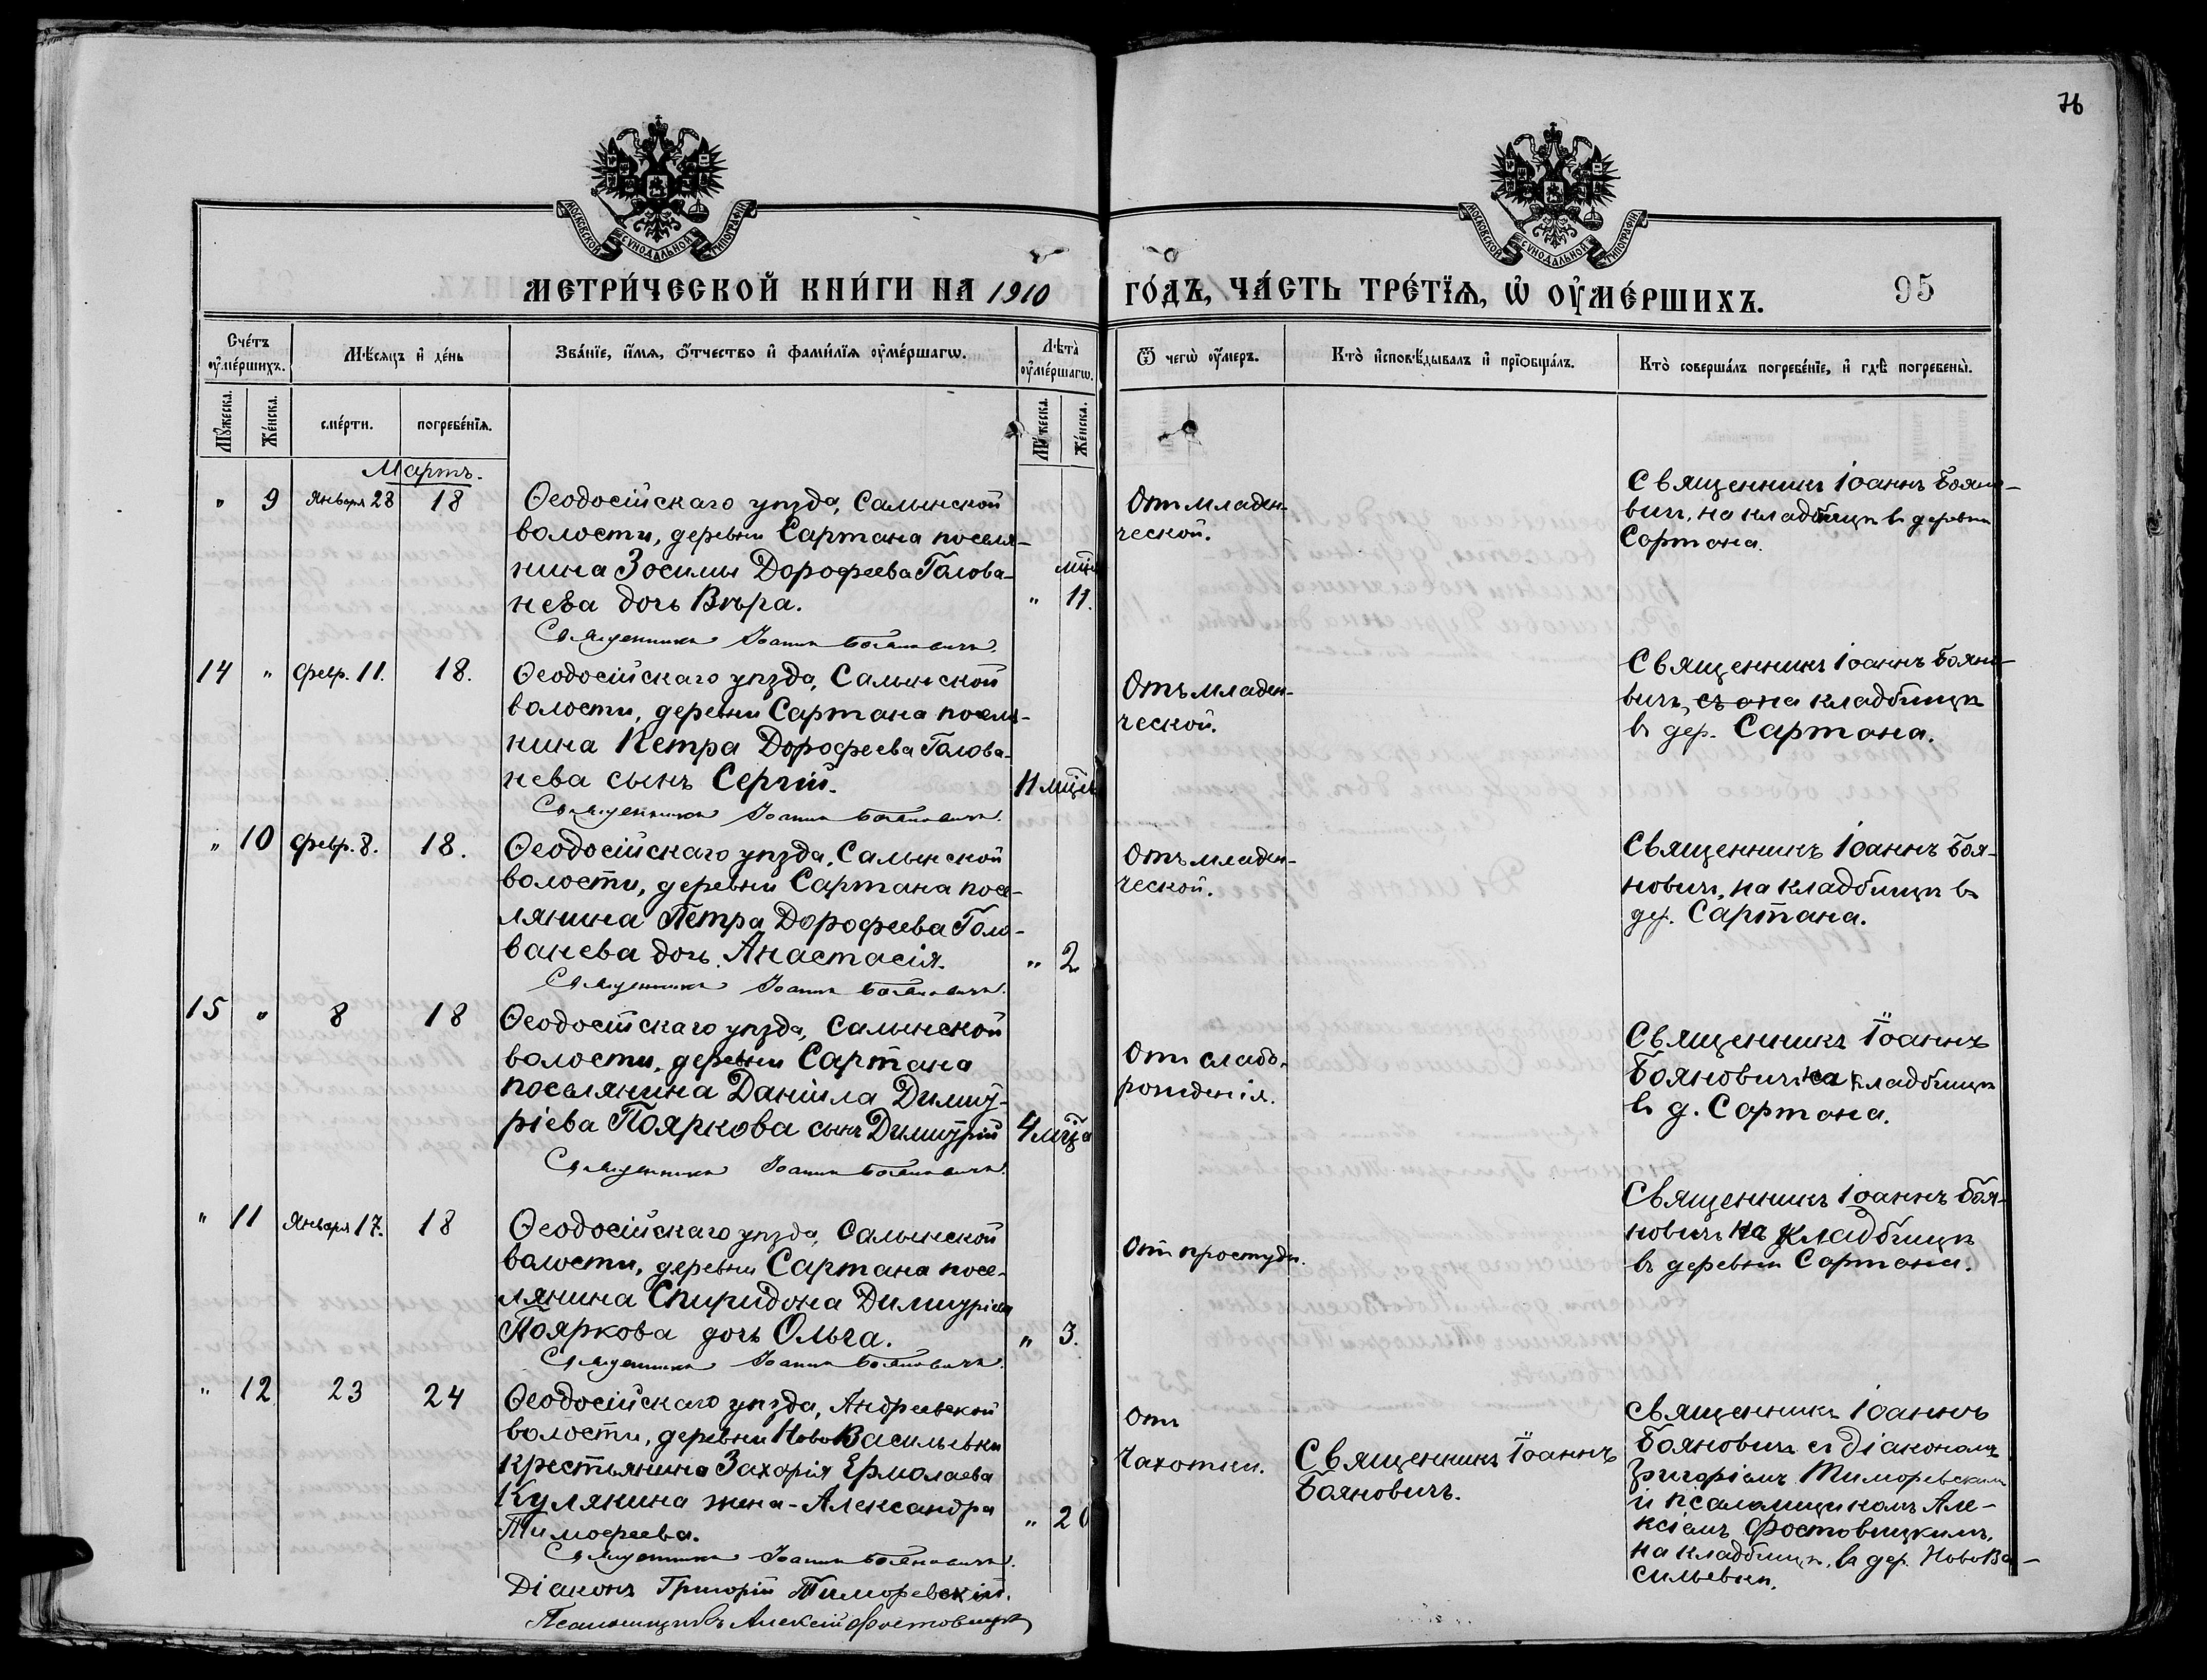 76
МОСКОВСКОЙ СУНОДАЛЬНОЙ ТИПОГРАФІИ
МОСКОВСКОЙ СУНОДАЛЬНОЙ ТИПОГРАФІИ
МЕТРИ́ЧЕСКОЙ КНИ́ГИ НА 1910 ГО́ДЪ, ЧА́СТЬ ТРЕ́ТЇѦ, Ѡ҆ ОУ҆МЕ́РШИХЪ. 95
Сче́тъ оу҆ме́ршихъ.
Мѣ́сѧцъ и҆ де́нь
Зва́нїе, и҆́мѧ, ѻ҆́тчество и҆ фами́лїѧ оу҆ме́ршагѡ.
Лѣта̀ оу҆ме́ршагѡ.
Ѿ чегѡ̀ оу҆́меръ.
Кто̀ и҆сповѣ́дывалъ и҆ прїѡбща́лъ.
Кто̀ соверша́лъ погребе́нїе, и҆ гдѣ̀ погребены̀.
Мꙋ́жеска.
Же́нска.
сме́рти.
погребе́нїѧ.
Мꙋ́жеска.
Же́нска.
Мартъ.
" 9 Января 28 18
Ѳеодосійскаго уѣзда, Салынской
волости, деревни Сартана поселя-
нина Зосимы Дорофеева Голова-
нева дочь Вѣра.
" 11.
Священникъ Іоаннъ Бояновичъ.
От младен-
ческой.
Священникъ Іоаннъ Бояно-
вичъ, на кладбищѣ въ деревнѣ
Сартана.
14 " Февр. 11. 18.
Ѳеодосійскаго уѣзда, Салынской
волости, деревни Сартана поселя-
нина Петра Дорофеева Голова-
нева сынъ Сергій.
11 мцев
Священникъ Іоаннъ Бояновичъ.
Отъ младен-
ческой.
Священникъ Іоаннъ Бояно-
вичъ, на кладбищѣ
въ дер. Сартана.
" 10 Февр. 8. 18.
Ѳеодосійскаго уѣзда, Салынской
волости, деревни Сартана посе-
лянина Петра Дорофеева Голо-
ванева дочь Анастасія.
" 2
Священникъ Іоаннъ Бояновичъ.
Отъ младен-
ческой.
Священникъ Іоаннъ Боя-
новичъ, на кладбищѣ въ
дер. Сартана.
15 " 8 18
Ѳеодосійскаго уѣзда, Салынской
волости, деревни Сартана
поселянина Даніила Димит-
ріева Пояркова сынъ Димитрій
4 мца
Священникъ Іоаннъ Бояновичъ.
Отъ слабо-
рожденія.
Священникъ Іоаннъ
Бояновичъ на кладбищѣ
въ д. Сартана.
" 11 Января 17. 18
Ѳеодосійскаго уѣзда, Салынской
волости, деревни Сартана посе-
лянина Спиридона Димитріева
Пояркова дочь Ольга.
" 3.
Священникъ Іоаннъ Бояновичъ.
Отъ простуды.
Священникъ Іоаннъ Боя-
новичъ на кладбищѣ
въ деревнѣ Сартана.
" 12 23 24
Ѳеодосійскаго уѣзда, Андреевской
волости, деревни НовоВасильевки
крестьянина Захарія Ермолаева
Кулякина жена - Александра
Тимофеева.
" 20
Священникъ Іоаннъ Бояновичъ.
Діаконъ Григорій Тиморевскій.
Псаломщикъ Алексій Фостовицкій
Отъ
чахотки.
Священникъ Іоаннъ
Бояновичъ.
Священникъ Іоаннъ
Бояновичъ съ діакономъ
Григоріемъ Тиморевскимъ
и псаломщикомъ Але-
ксіемъ Фостовицкимъ,
на кладбищѣ, въ дер. НовоВа-
сильевки.